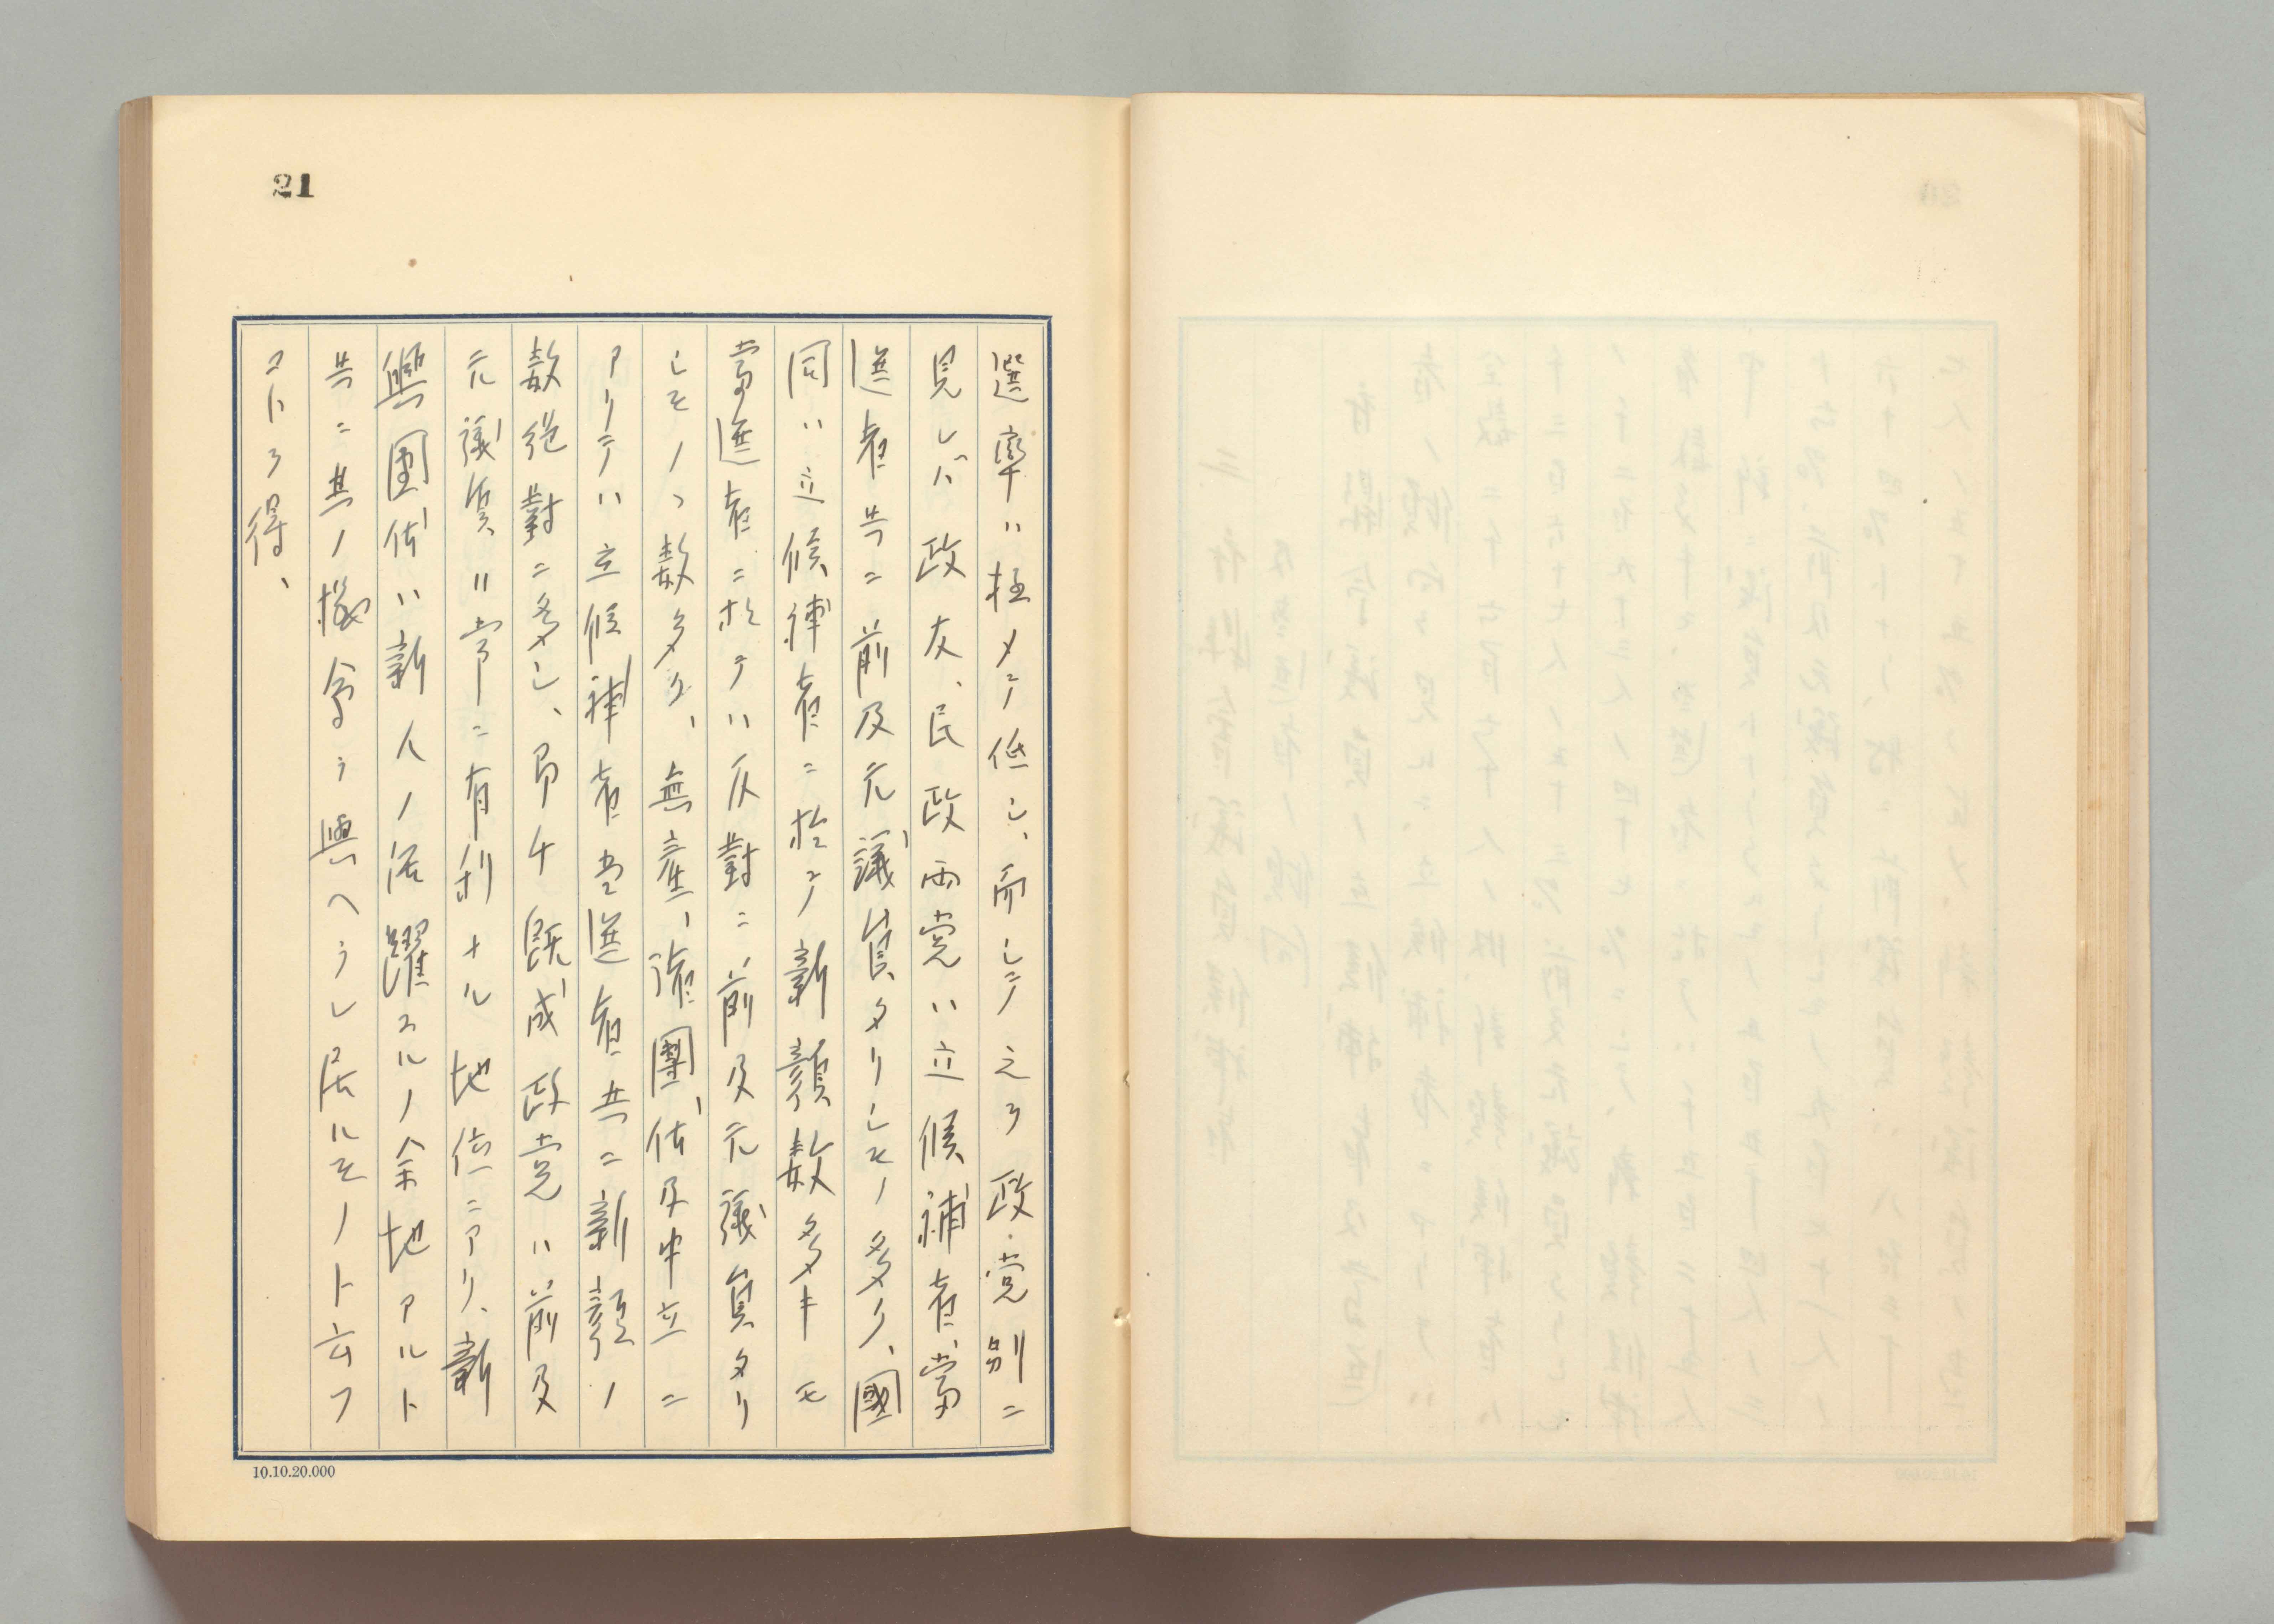 21
選率ハ極メテ低シ、而シテ之ヲ政党別ニ
見レバ政友、民政両党ハ立候補者、當
選者共ニ前及元議員タリシモノ多ク、國
同ハ立候補者ニ於テ新顏數多キモ
當選者ニ於テハ反對ニ前及元議員タリ
シモノヽ數多ク、無産、團体及中立ニ
アリテハ立候補者当選者共ニ新顏ノ
數絶對ニ多シ、即チ既成政党ハ前及
元議員ハ常ニ有利ナル地位ニアリ、新
興團体ハ新人ノ活躍スルノ余地アルト
共ニ其ノ機会ヲ與ヘラレ居ルモノト云フ
コトヲ得、
10.10.20.000